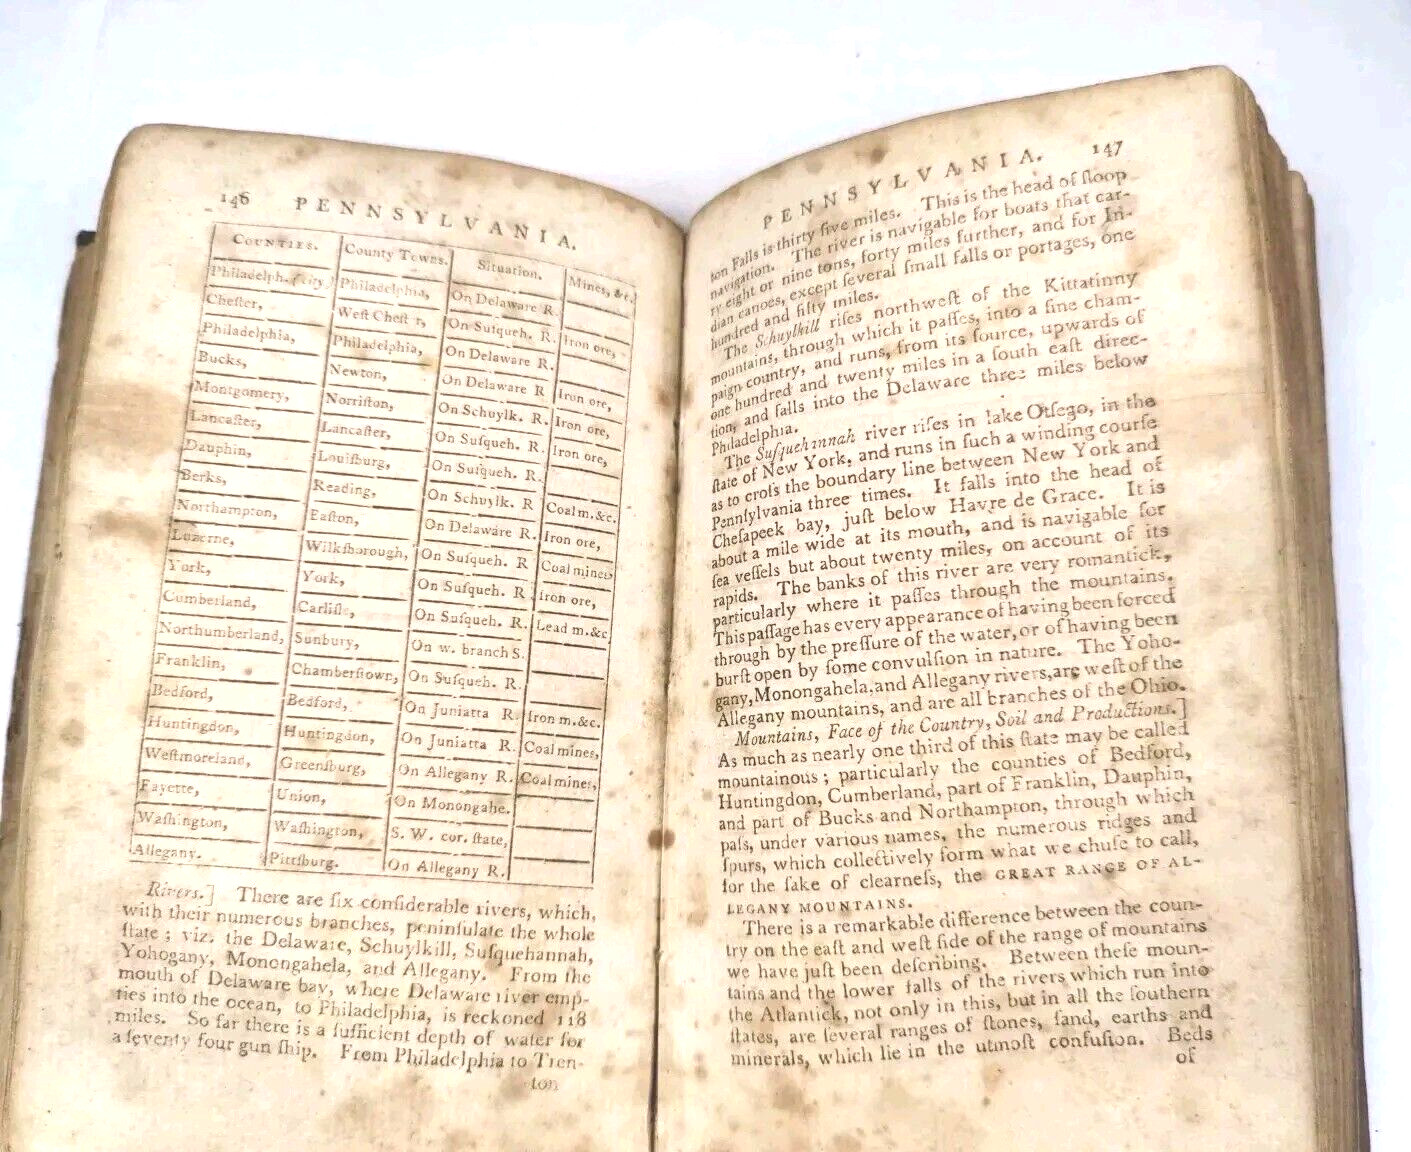 146 PENNSYLVANIA.
COUNTIES. County Towns. Situation. Mines, &c.
Philadelph. (city) Philadelphia, On Delaware R.
Cheſter, Weſt Cheſt r, On Suſqueh. R. Iron ore,
Philadelphia, Philadelphia, On Delaware R.
Bucks, Newton, On Delaware R Iron ore,
Montgomery, Norriſton, On Schuylk. R. Iron ore,
Lancaſter, Lancaſter, On Suſqueh. R. Iron ore,
Dauphin, Louiſburg, On Suſqueh. R.
Berks, Reading, On Schuylk. R Coal m. &c.
Northampton, Eaſton, On Delaware R. Iron ore,
Luzerne, Wilkſborough, On Suſqueh. R Coal mines,
York, York, On Suſqueh. R. Iron ore,
Cumberland, Carliſle, On Suſqueh. R. Lead m. &c
Northumberland, Sunbury, On w. branch S.
Franklin, Chamberſtown, On Suſqueh. R.
Bedford, Bedford, On Juniatta R. Iron m. &c.
Huntingdon, Huntingdon, On Juniatta R. Coal mines,
Weſtmoreland, Greenſburg, On Allegany R. Coal mines,
Fayette, Union, On Monongahe.
Waſhington, Waſhington, S. W. cor. ſtate,
Allegany. Pittſburg. On Allegany R.
Rivers.] There are ſix conſiderable rivers, which,
with their numerous branches, peninſulate the whole
ſtate ; viz. the Delaware, Schuylkill, Suſquehannah,
Yohogany, Monongahela, and Allegany. From the
mouth of Delaware bay, where Delaware river emp-
ties into the ocean, to Philadelphia, is reckoned 118
miles. So far there is a ſufficient depth of water for
a ſeventy four gun ſhip. From Philadelphia to Tren-
ton
PENNSYLVANIA. 147
ton Falls is thirty five miles. This is the head of ſloop
navigation. The river is navigable for boats that car-
ry eight or nine tons, forty miles further, and for In-
dian canoes, except ſeveral ſmall falls or portages, one
hundred and fifty miles.
The Schuylkill riſes northweſt of the Kittatinny
mountains, through which it paſſes, into a fine cham-
paign country, and runs, from its ſource, upwards of
one hundred and twenty miles in a ſouth eaſt direc-
tion, and falls into the Delaware three miles below
Philadelphia.
The Suſquehannah river riſes in lake Otſego, in the
ſtate of New York, and runs in ſuch a winding courſe
as to croſs the boundary line between New York and
Pennſylvania three times. It falls into the head of
Cheſapeek bay, juſt below Havre de Grace. It is
about a mile wide at its mouth, and is navigable for
ſea veſſels but about twenty miles, on account of its
rapids. The banks of this river are very romantick,
particularly where it paſſes through the mountains.
This paſſage has every appearance of having been forced
through by the preſſure of the water, or of having been
burſt open by ſome convulſion in nature. The Yoho-
gany, Monongahela, and Allegany rivers, are weſt of the
Allegany mountains, and are all branches of the Ohio.
Mountains, Face of the Country, Soil and Productions.]
As much as nearly one third of this ſtate may be called
mountainous ; particularly the counties of Bedford,
Huntingdon, Cumberland, part of Franklin, Dauphin,
and part of Bucks and Northampton, through which
paſs, under various names, the numerous ridges and
ſpurs, which collectively form what we chuſe to call,
for the ſake of clearneſs, the GREAT RANGE OF AL-
LEGANY MOUNTAINS.
There is a remarkable difference between the coun-
try on the eaſt and weſt ſide of the range of mountains
we have juſt been deſcribing. Between theſe moun-
tains and the lower falls of the rivers which run into
the Atlantick, not only in this, but in all the ſouthern
ſtates, are ſeveral ranges of ſtones, ſand, earths and
minerals, which lie in the utmoſt confuſion. Beds
of